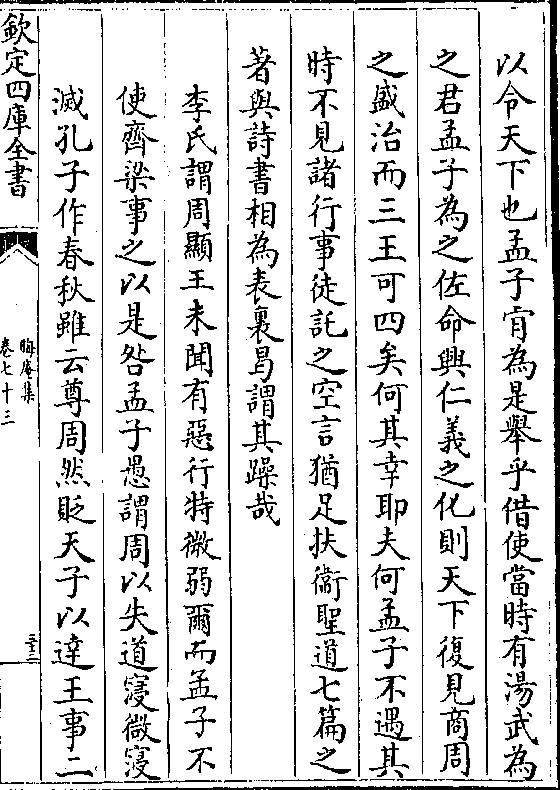 以令天下也孟子肯為是舉乎借使當時有湯武為
之君孟子為之佐命興仁義之化則天下復見商周
之盛治而三王可四矣何其幸耶夫何孟子不遇其
時不見諸行事徒託之空言猶足扶衞聖道七篇之
著與詩書相為表裏曷謂其躁哉
李氏謂周顯王未聞有惡行特微弱爾而孟子不
使齊梁事之以是咎孟子愚謂周以失道寖微寖
滅孔子作春秋雖云尊周然貶天子以達王事二
欽定四庫全書
晦庵集
卷七十三